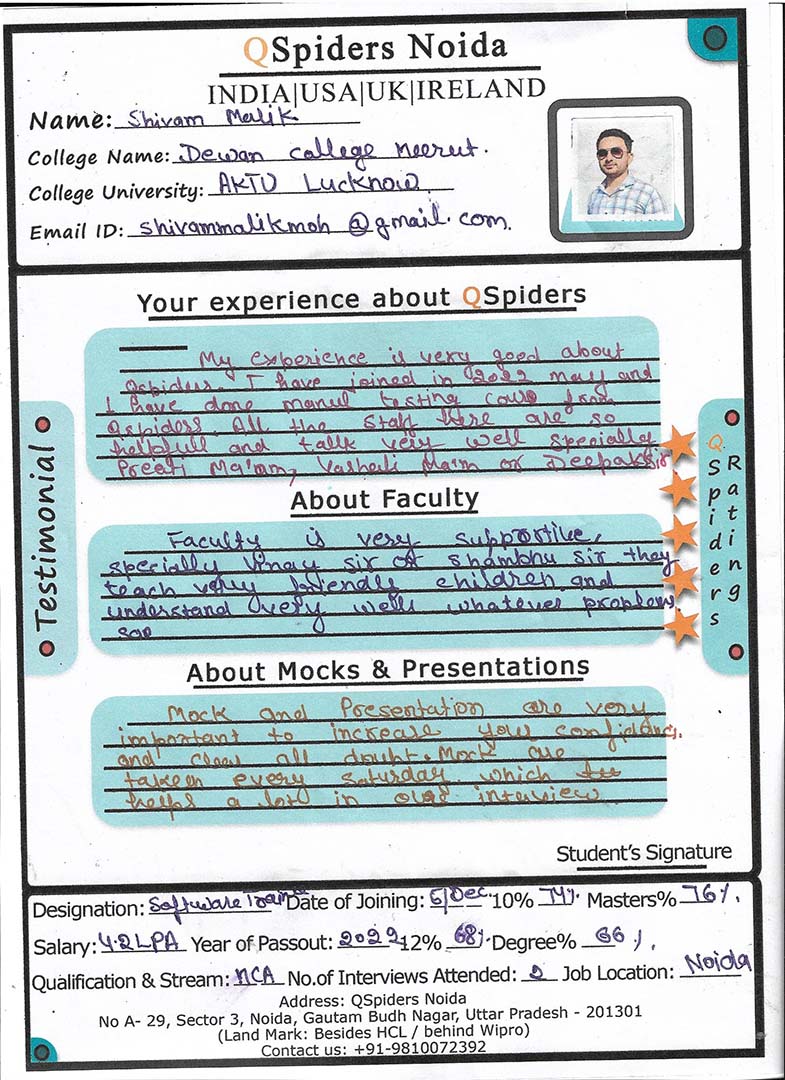 QSpiders Noida
INDIA|USA|UK|IRELAND
Name: Shivam Malik
College Name: Dewan College Meerut.
College University: AKTU Lucknow
Email ID: shivammalikmoh@gmail.com.
Your experience about QSpiders
My experience is very good about
Qspiders. I have joined in 2022 may and
I have done manul testing cours from
Qspiders. All the staff there are so
helpfull and talk very well specially
Preati Ma'am, Vashali Ma'm or Deepak sir
About Faculty
Faculty is very supportive,
specially Vinay sir or Shambhu sir they
teach very friendly children and
understand very well whatever problem
About Mocks & Presentations
Mock and Presentation are very
important to increase your confidence.
and clear all doubt. Mock are
takeen every Saturday which
helps a lot in our interview
Testimonial
QSpiders
Rating
Student's Signature
Designation: Software Trainee Date of Joining: 5/Dec. 10% 74%. Masters% 76%.
Salary: 4.2LPA Year of Passout: 2022 12% 68%. Degree% 66%.
Qualification & Stream: MCA No.of Interviews Attended: Job Location: Noida
Address: QSpiders Noida
No A- 29, Sector 3, Noida, Gautam Budh Nagar, Uttar Pradesh - 201301
(Land Mark: Besides HCL / behind Wipro)
Contact us: +91-9810072392